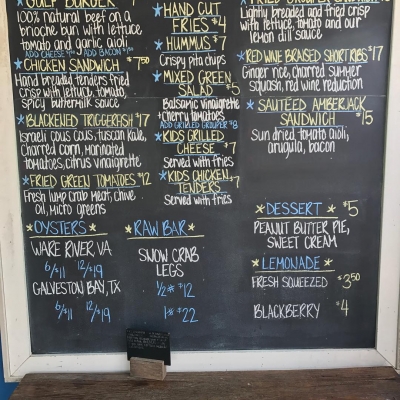 GULF BURGER 7
100% natural beef on a
brioche bun with lettuce,
tomato and garlic aioli
ADD CHEESE ADD BACON
CHICKEN SANDWICH $7.50
Hand breaded tenders fried
crisp with lettuce, tomato,
spicy buttermilk sauce
BLACKENED TRIGGERFISH $17
Israeli cous cous, tuscan kale,
Charred corn, marinated
tomatoes, citrus vinaigrette
FRIED GREEN TOMATOES $12
Fresh lump crab meat, chive
oil, micro greens
OYSTERS
WARE RIVER, VA
6/$11 12/$19
GALVESTON BAY, TX
6/$11 12/$19
HAND CUT
FRIES $4
HUMMUS $7
Crispy pita chips
MIXED GREEN
SALAD $5
Balsamic vinaigrette
cherry tomatoes
ADD GRILLED GROUPER $8
KIDS GRILLED
CHEESE $7
Served with fries
KIDS CHICKEN
TENDERS $7
Served with fries
RAW BAR
SNOW CRAB
LEGS
1/2# $12
1# $22
Lightly breaded and fried crisp
with lettuce, tomato and our
lemon dill sauce
RED WINE BRAISED SHORT RIBS $17
Ginger rice, charred summer
squash, red wine reduction
SAUTÉED AMBERJACK
SANDWICH $15
Sun dried tomato aioli,
arugula, bacon
DESSERT $5
PEANUT BUTTER PIE,
SWEET CREAM
LEMONADE
FRESH SQUEEZED $3.50
BLACKBERRY $4